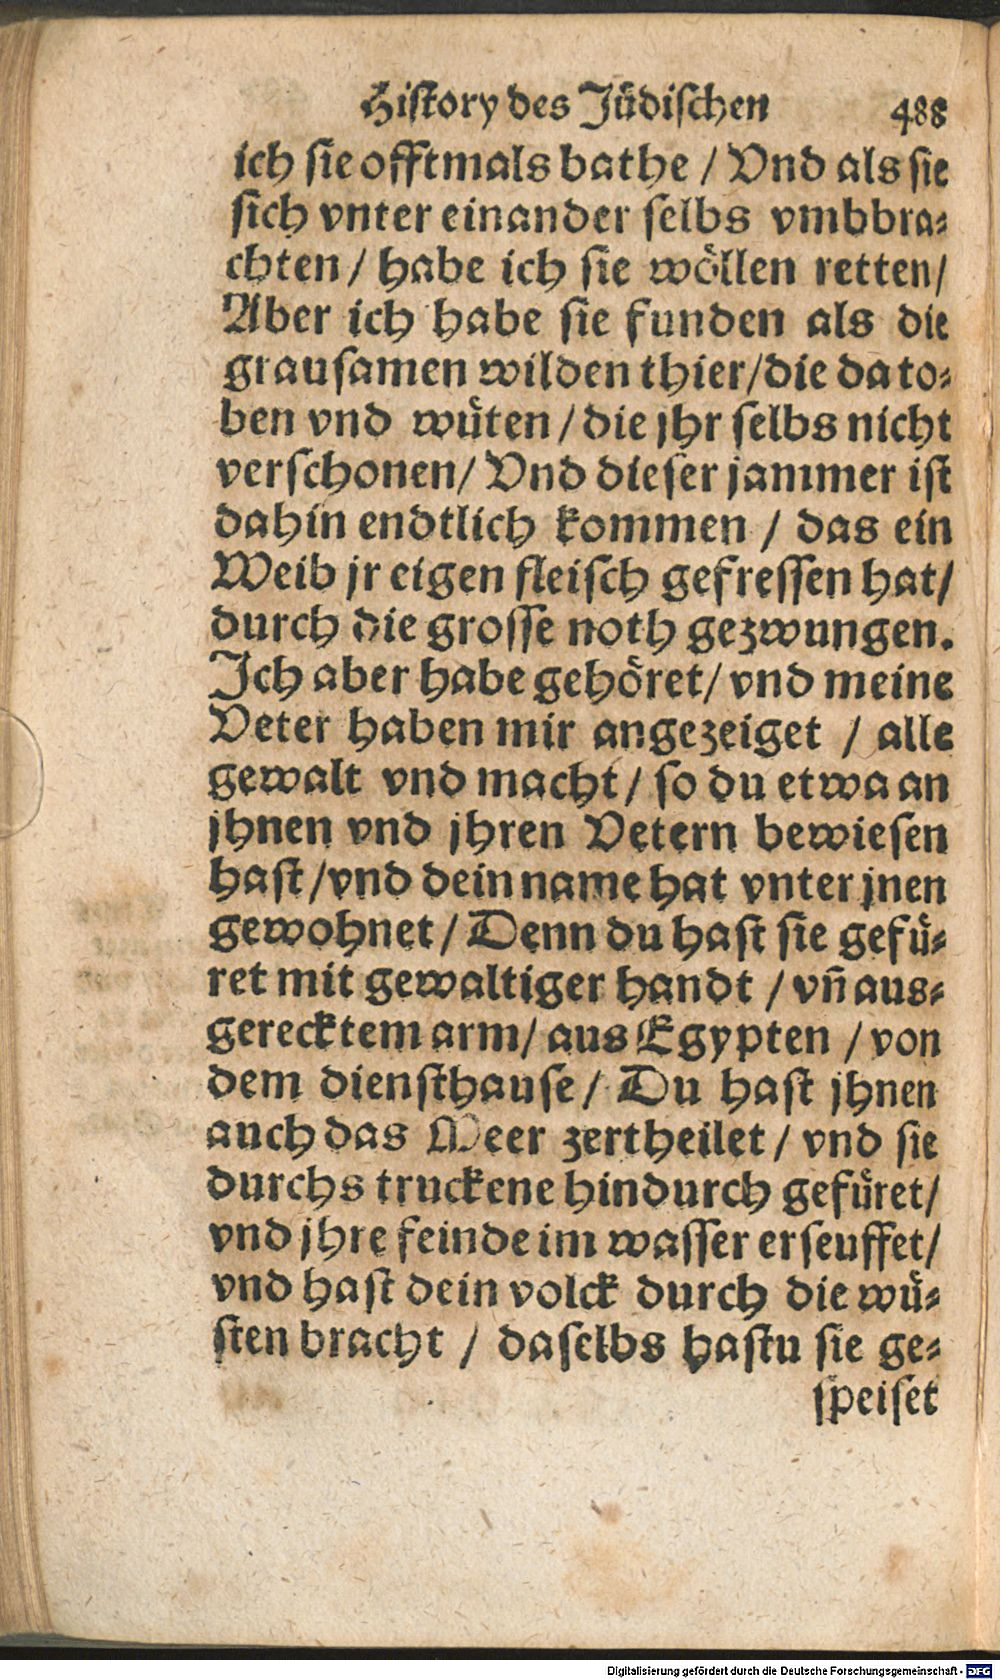 History des Jüdischen 488
ich sie offtmals bathe / Vnd als sie
sich vnter einander selbs vmbbra-
chten / habe ich sie wöllen retten /
Aber ich habe sie funden als die
grausamen wilden thier / die da to-
ben vnd wüten / die jhr selbs nicht
verschonen / Vnd dieser jammer ist
dahin endtlich kommen / das ein
Weib jr eigen fleisch gefressen hat /
durch die grosse noth gezwungen.
Ich aber habe gehöret / vnd meine
Veter haben mir angezeiget / alle
gewalt vnd macht / so du etwa an
jhnen vnd jhren Vetern bewiesen
hast / vnd dein name hat vnter jnen
gewohnet / Denn du hast sie gefü-
ret mit gewaltiger handt / vñ aus-
gerecktem arm / aus Egypten / von
dem diensthause / Du hast jhnen
auch das Meer zertheilet / vnd sie
durchs truckene hindurch gefüret /
vnd jhre feinde im wasser erseuffet /
vnd hast dein volck durch die wü-
sten bracht / daselbs hastu sie ge-
speiset
Digitalisierung gefördert durch die Deutsche Forschungsgemeinschaft - DFG